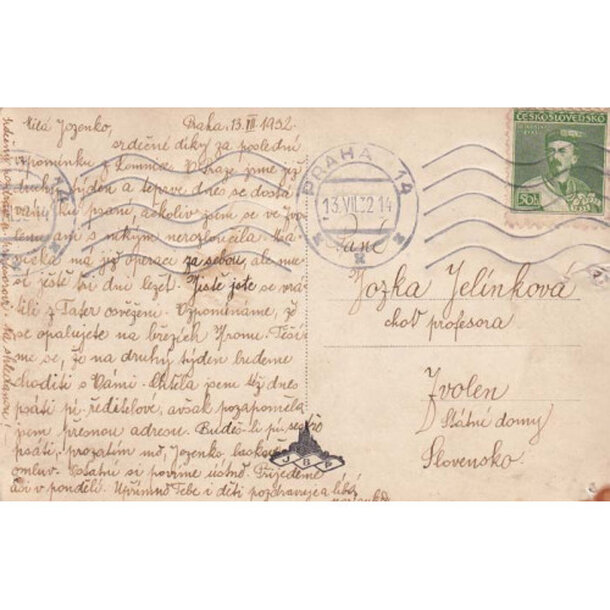 Milá Jozenko, Praha, 13. VII 1932.
srdečné díky za poslední
vzpomínku z Lomnice. V Praze jsme již
druhý týden a teprve dnes se dostá
vám ku psaní, ačkoliv jsem se ve Zvo
lenu ani s nikým nerozloučila. Ma
má již operaci za sebou, ale mu
sí ještě tři dni ležet. Jistě jste se vrá
tili z Tater osvěženi. Vzpomínáme, že
se opalujete na březích Hronu. Těší
me se, že na druhý týden budeme
choditi s Vámi. Chtěla jsem též dnes
psáti pí ředitelové, avšak pozapoměla
jsem přesnou adresu. Budeš-li pí
psáti, prozatím mě, Jozenko laskavě
omluv. Ostatní si povíme ústně. Přijedeme
asi v pondělí. Upřímně Tebe i děti pozdravuje a líbá
Na shledanou!
JBP
PRAHA 14
13.VII.32 14
ČESKOSLOVENSKO
50h
Paní
Jozka Jelínková
choť profesora
Zvolen
Státné domy
Slovensko.